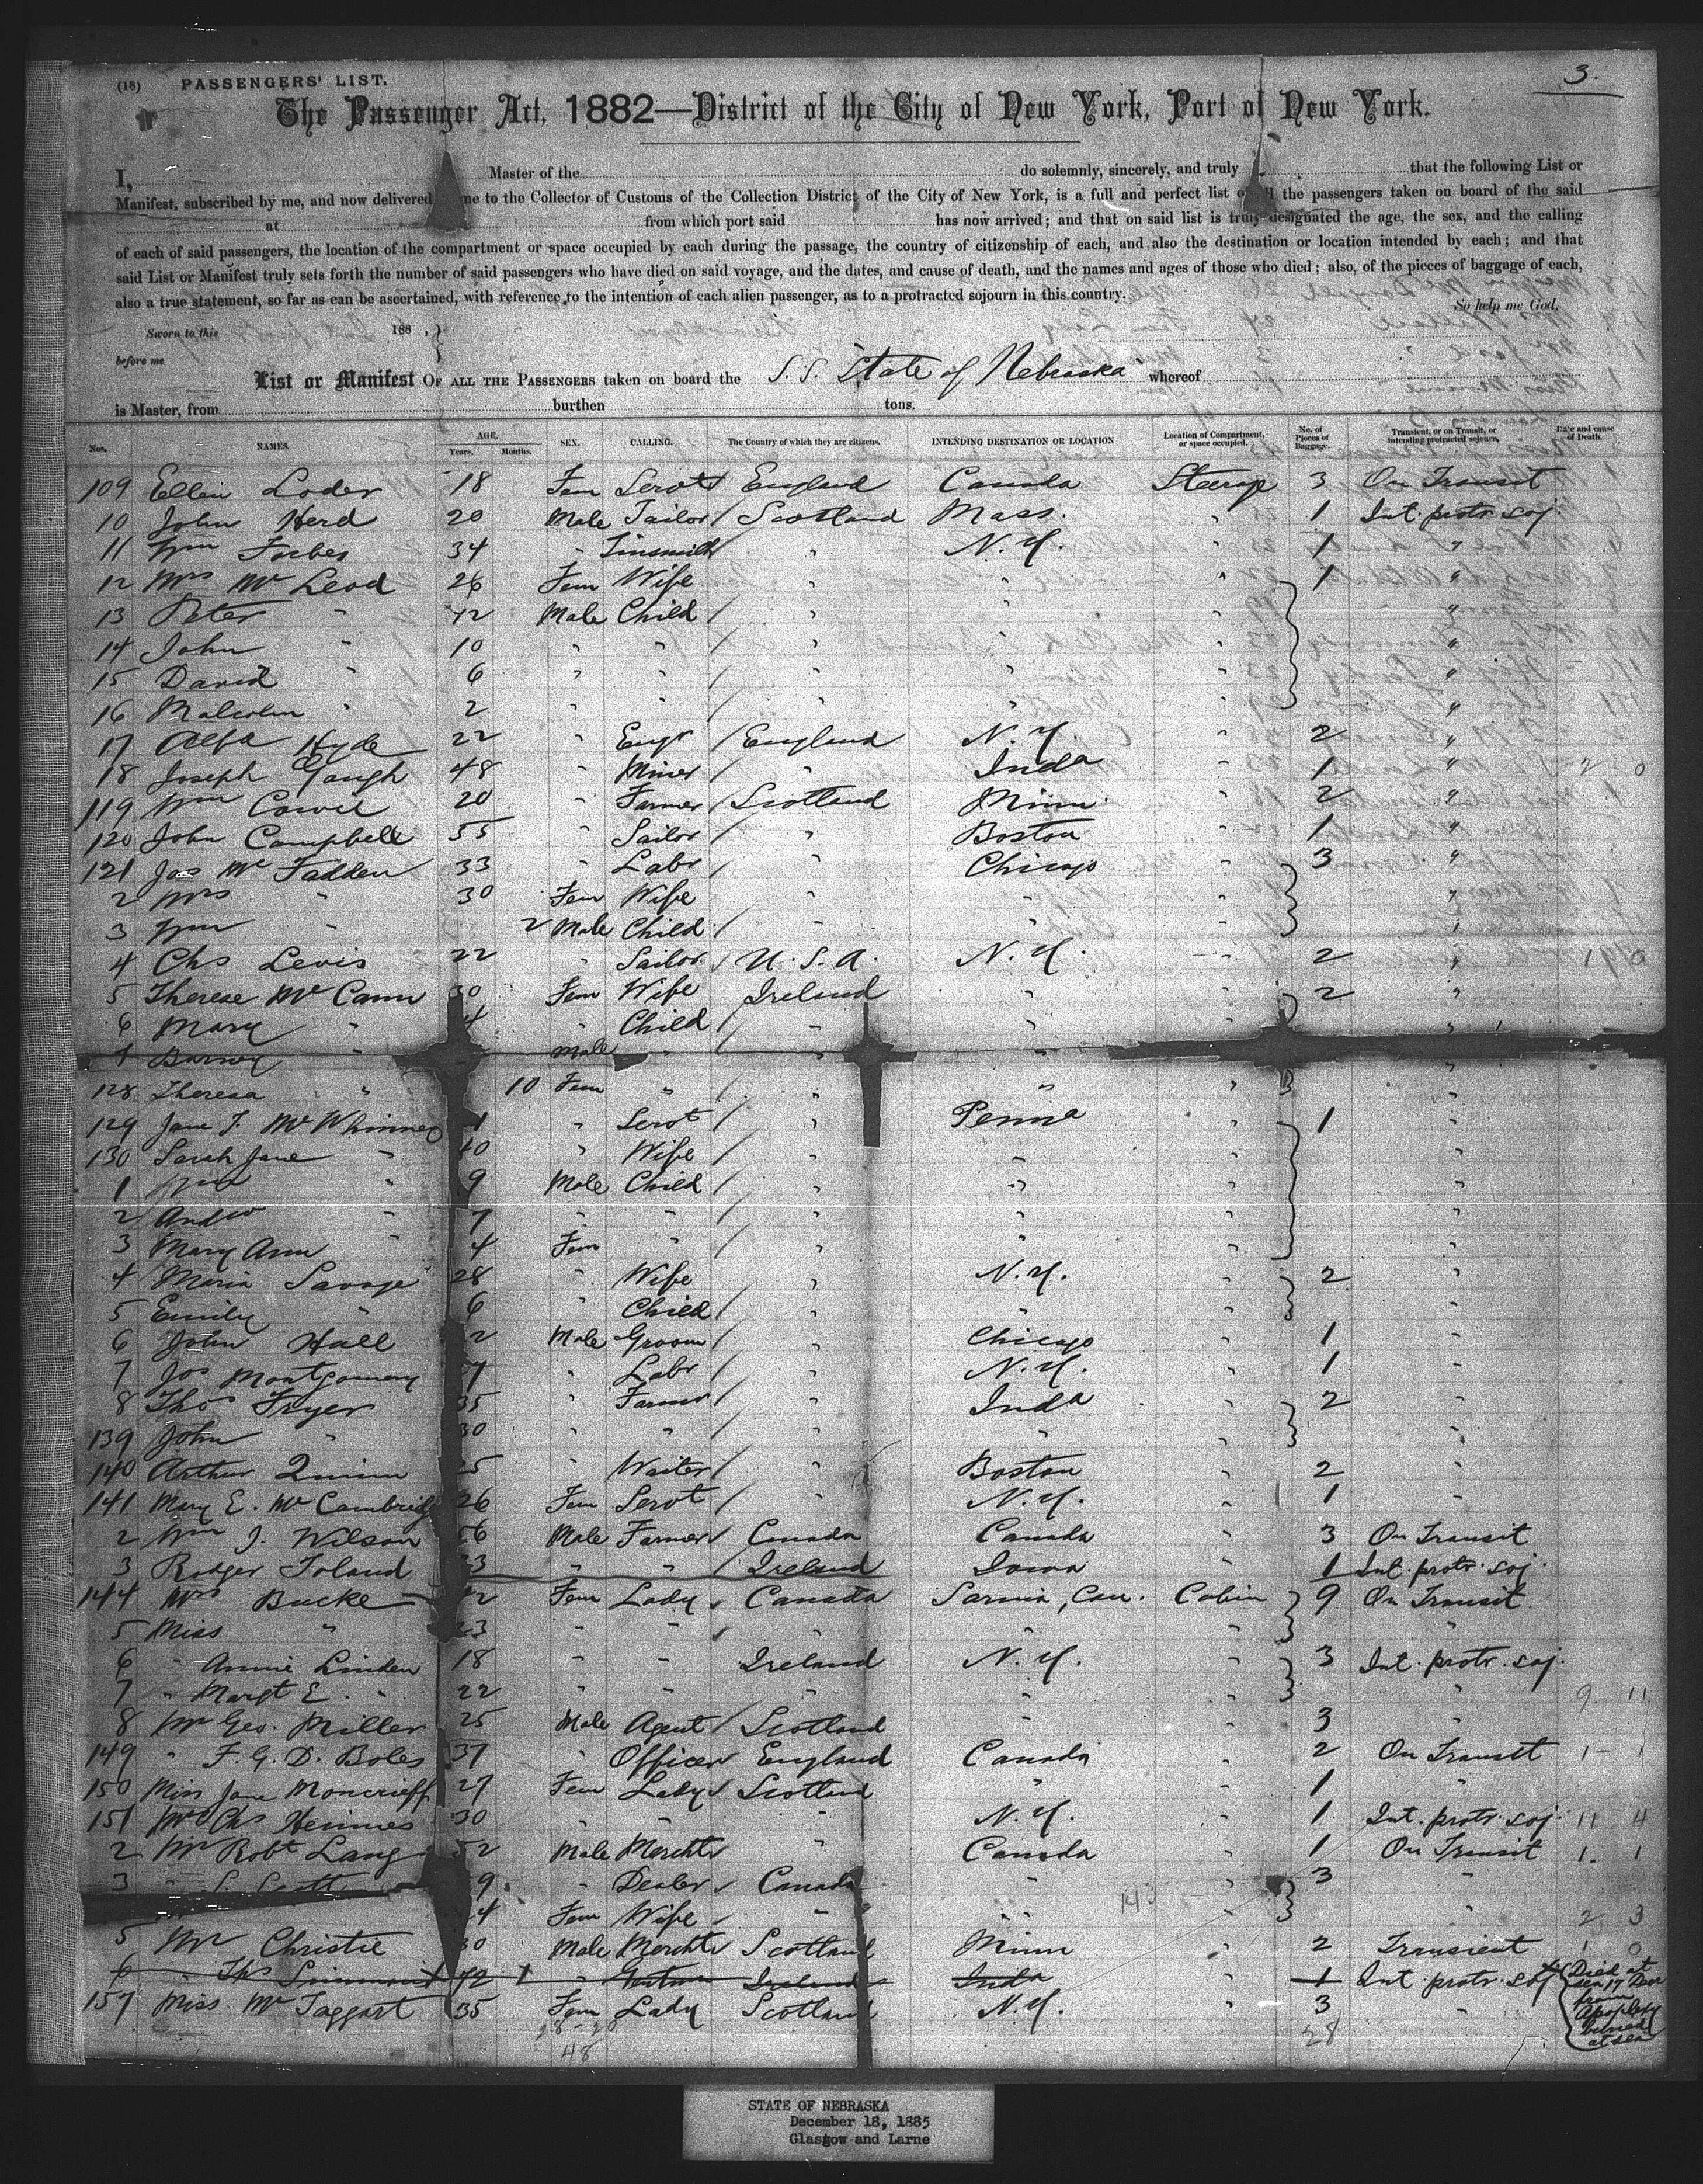 3.
(18) PASSENGERS' LIST.
The Passenger Act, 1882—District of the City of New York, Port of New York.
I, Master of the do solemnly, sincerely, and truly that the following List or
Manifest, subscribed by me, and now delivered me to the Collector of Customs of the Collection District of the City of New York, is a full and perfect list of all the passengers taken on board of the said
at from which port said has now arrived; and that on said list is truly designated the age, the sex, and the calling
of each of said passengers, the location of the compartment or space occupied by each during the passage, the country of citizenship of each, and also the destination or location intended by each; and that
said List or Manifest truly sets forth the number of said passengers who have died on said voyage, and the dates, and cause of death, and the names and ages of those who died; also, of the pieces of baggage of each,
also a true statement, so far as can be ascertained, with reference to the intention of each alien passenger, as to a protracted sojourn in this country. So help me God.
Sworn to this 188 , }
before me
List or Manifest OF ALL THE PASSENGERS taken on board the S.S. "State of Nebraska" whereof
is Master, from burthen tons.
Nos. NAMES. AGE. Years. Months. SEX. CALLING. The Country of which they are citizens. INTENDING DESTINATION OR LOCATION Location of Compartment, or space occupied. No. of Pieces of Baggage. Transient, or on Transit, or intending protracted sojourn. Date and cause of Death.
109 Ellen Loder 18 Fem Servt England Canada Steerage 3 On Transit
10 John Herd 20 Male Tailor Scotland Mass. " 1 Int. protr. soj.
11 Wm Forbes 34 " Tinsmith " N.Y. " 1 "
12 Mrs McLeod 26 Fem Wife " " " 1 "
13 Peter " 12 Male Child " " " "
14 John " 10 " " " " " "
15 David " 6 " " " " " "
16 Malcolm " 2 " " " " " "
17 Alfd Hyde 22 " Engr England N.Y. " 2 "
18 Joseph Gough 48 " Miner " Inda " 1 " 2 0
119 Wm Cowie 20 " Farmer Scotland Minn. " 2 "
120 John Campbell 35 " Sailor " Boston " 1 "
121 Jas McFadden 33 " Labr " Chicago " 3 "
2 Mrs " 30 Fem Wife " " " "
3 Wm " 2 Male Child " " " "
4 Chs Levis 22 " Sailor U.S.A. N.Y. " 2 "
5 Therese McCann 30 Fem Wife Ireland " " 2 "
6 Mary " 4 " Child " " " "
7 Barney " Male " " " "
128 Theresa " 10 Fem " " " " "
129 Jane F. McWhinney 1 " Servt Penna " 1 "
130 Sarah Jane " 40 " Wife " " " "
1 Wm " 9 Male Child " " " "
2 Andw " 7 " " " " " "
3 Mary Ann " 4 Fem " " " " "
4 Maria Savage 28 " Wife " N.Y. " 2 "
5 Emily " 6 " Child " " " "
6 John Hall 2 Male Groom " Chicago " 1 "
7 Jos Montgomery 7 " Labr " N.Y. " 1 "
8 Thos Fryer 35 " Farmer " Inda " 2 "
139 John " 30 " " " " " "
140 Arthur Quinn 25 " Waiter " Boston " 2 "
141 Mary E. McCambridge 26 Fem Servt " N.Y. " 1 "
2 Wm J. Wilson 56 Male Farmer Canada Canada " 3 On Transit
3 Rodger Toland 33 " " Ireland Iowa " 1 Int. protr. soj.
144 Mrs Bucke 2 Fem Lady Canada Sarnia, Can. Cabin 9 On Transit
5 Miss " 23 " " " " " "
6 " Annie Linden 18 " " Ireland N.Y. " 3 Int. protr. soj.
7 " Margt E. " 22 " " " " " " 9 11
8 Mr Geo. Miller 25 Male Agent Scotland " " 3 "
149 " F. G. D. Boles 37 " Officer England Canada " 2 On Transit 1 1
150 Miss Jane Moncrieff 27 Fem Lady Scotland " " 1 "
151 Mrs Chs Heinnes 30 " " " N.Y. " 1 Int. protr. soj. 11 4
2 Mr Robt Lang 52 Male Mercht " Canada " 1 On Transit 1 1
3 " S. Scott 9 " Dealer Canada " " 3 "
4 Fem Wife " " " " 2 3
5 Mr Christie 30 Male Mercht Scotland Minn " 2 Transient 1 0
6 " Ths Simmons 72 " Gentman Ireland Inda " 1 Int. protr. soj. Died at sea 17 Dec from Apoplexy buried at sea
157 Miss McTaggart 35 Fem Lady Scotland N.Y. " 3 "
28-20 28
48
STATE OF NEBRASKA
December 18, 1885
Glasgow and Larne